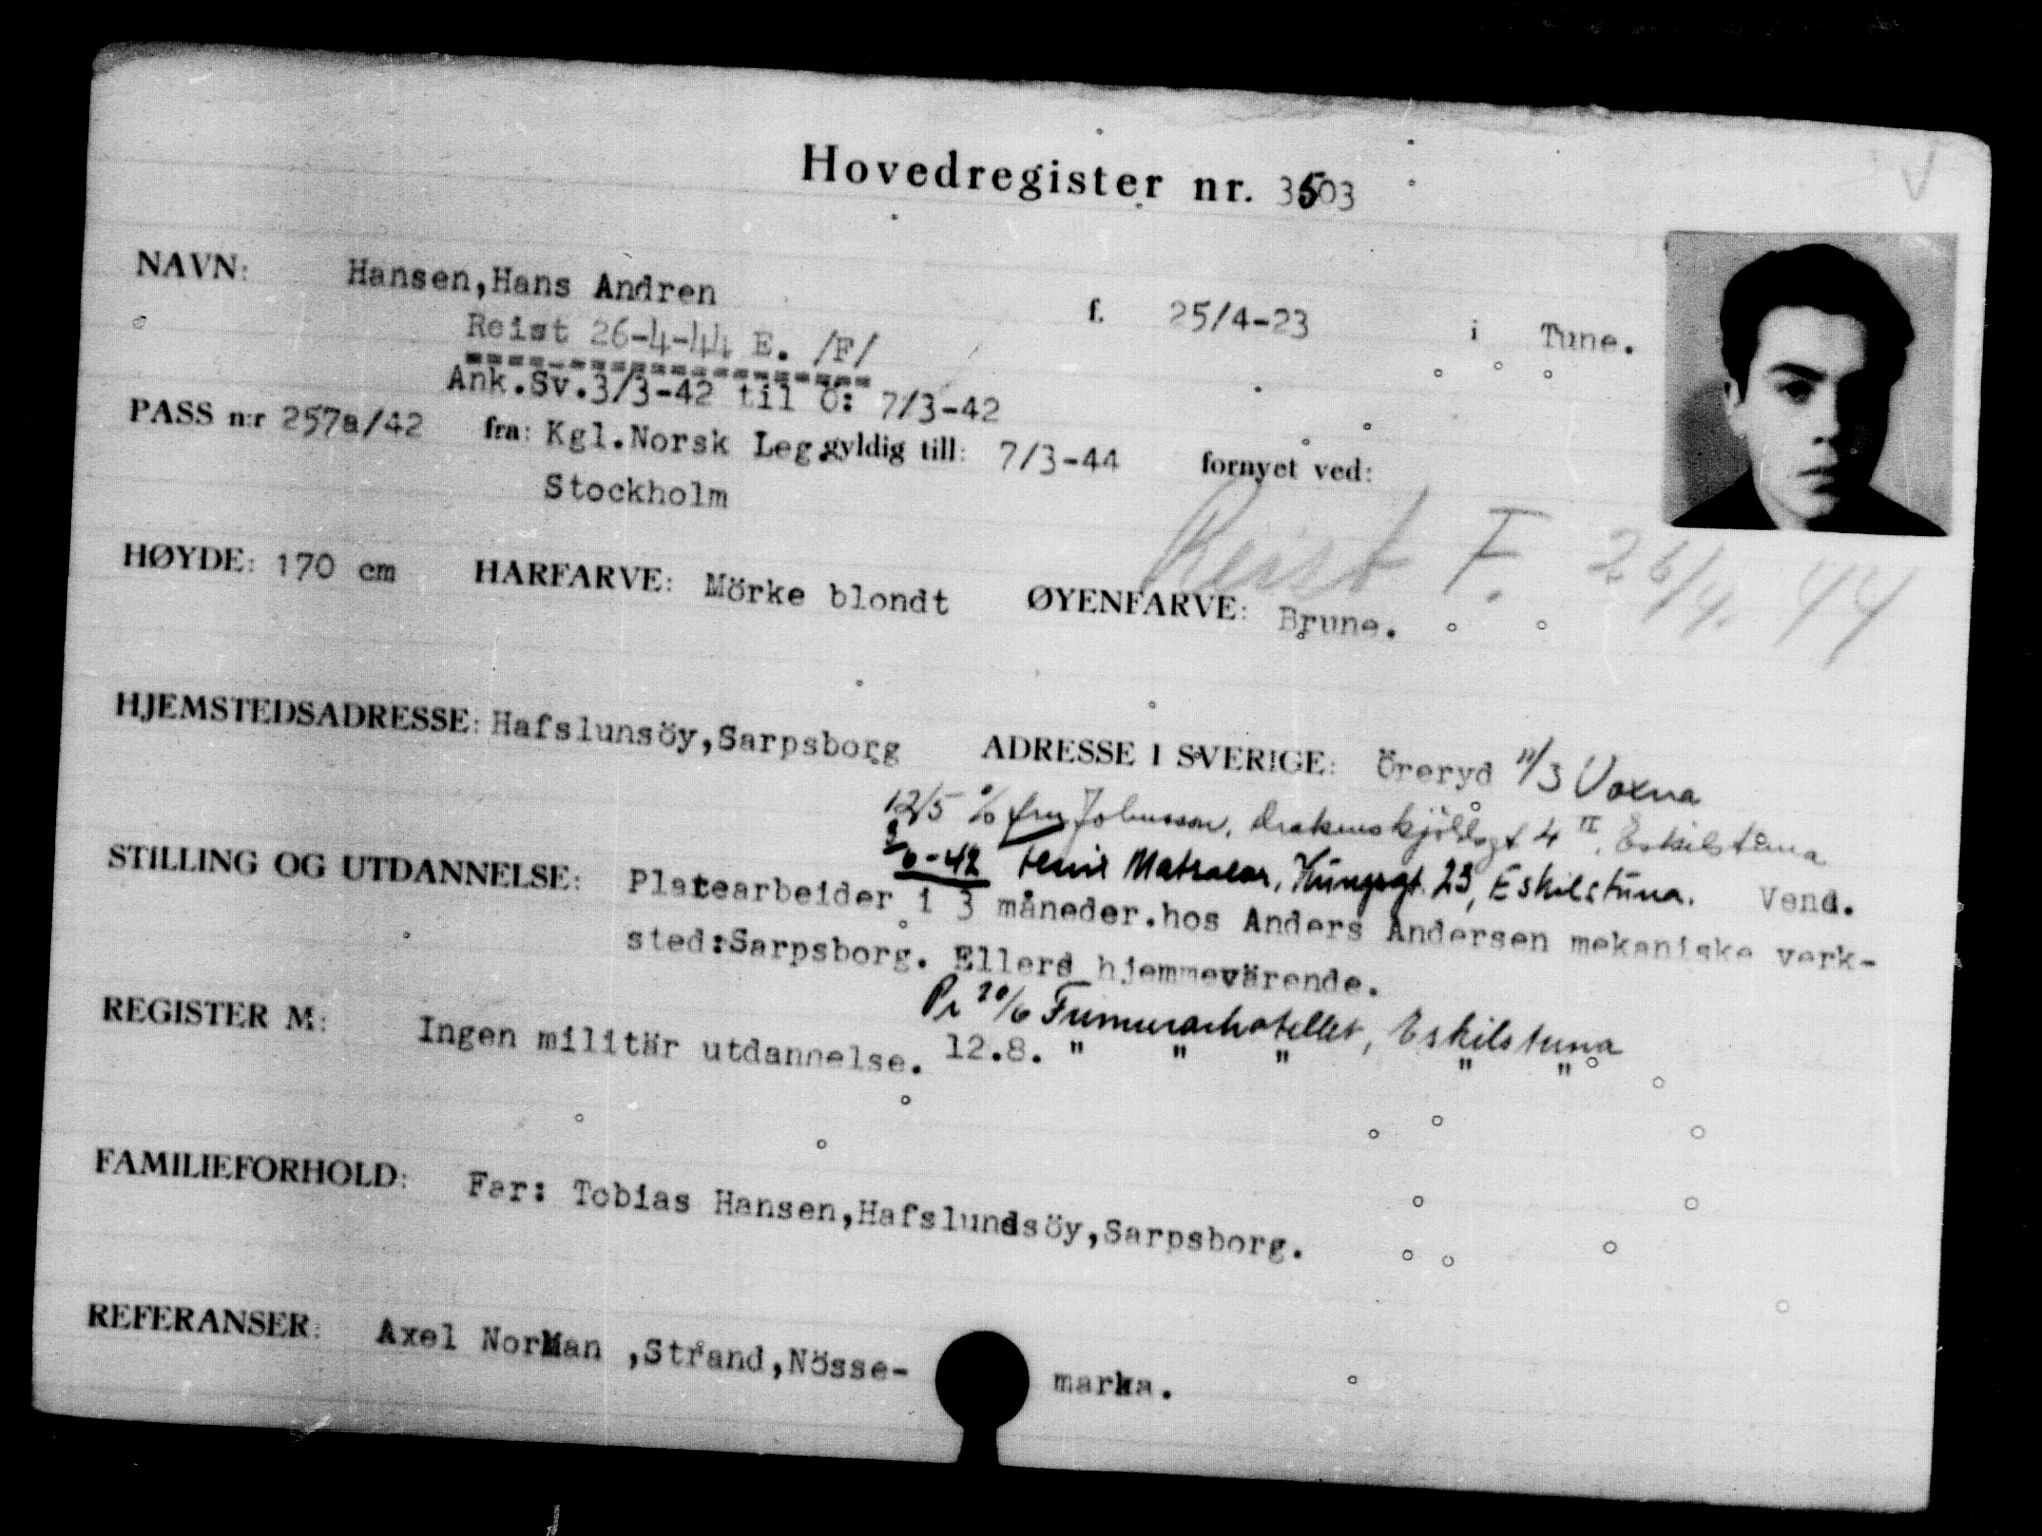 Hovedregister nr. 3503
NAVN: Hansen,Hans Andren f. 25/4-23 i Tune.
Reist 26-4-44 E. /F/
Ank.Sv.3/3-42 til Ö: 7/3-42
PASS n:r 257a/42 fra: Kgl.Norsk Leg. gyldig till: 7/3-44 fornyet ved:
Stockholm
Reist F. 26/4. 44
HØYDE: 170 cm HARFARVE: Mörke blondt ØYENFARVE: Brune.
HJEMSTEDSADRESSE: Hafslunsöy,Sarpsborg ADRESSE I SVERIGE: Öreryd 11/3 Voxna
12/5 c/o fru Johnsson, Drakenskjöldsgt 4 II, Eskilstuna
/6-42 Kungsgt. 23, Eskilstuna.
STILLING OG UTDANNELSE: Platearbeider i 3 måneder.hos Anders Andersen mekaniske verk- Vend.
sted:Sarpsborg. Ellers hjemmevärende.
Pr 20/6 Eskilstuna
REGISTER M: Ingen militär utdannelse. 12.8. " " " " "
FAMILIEFORHOLD: Far: Tobias Hansen,Hafslundsöy,Sarpsborg.
REFERANSER: Axel NorMan ,Strand,Nösse- marka.